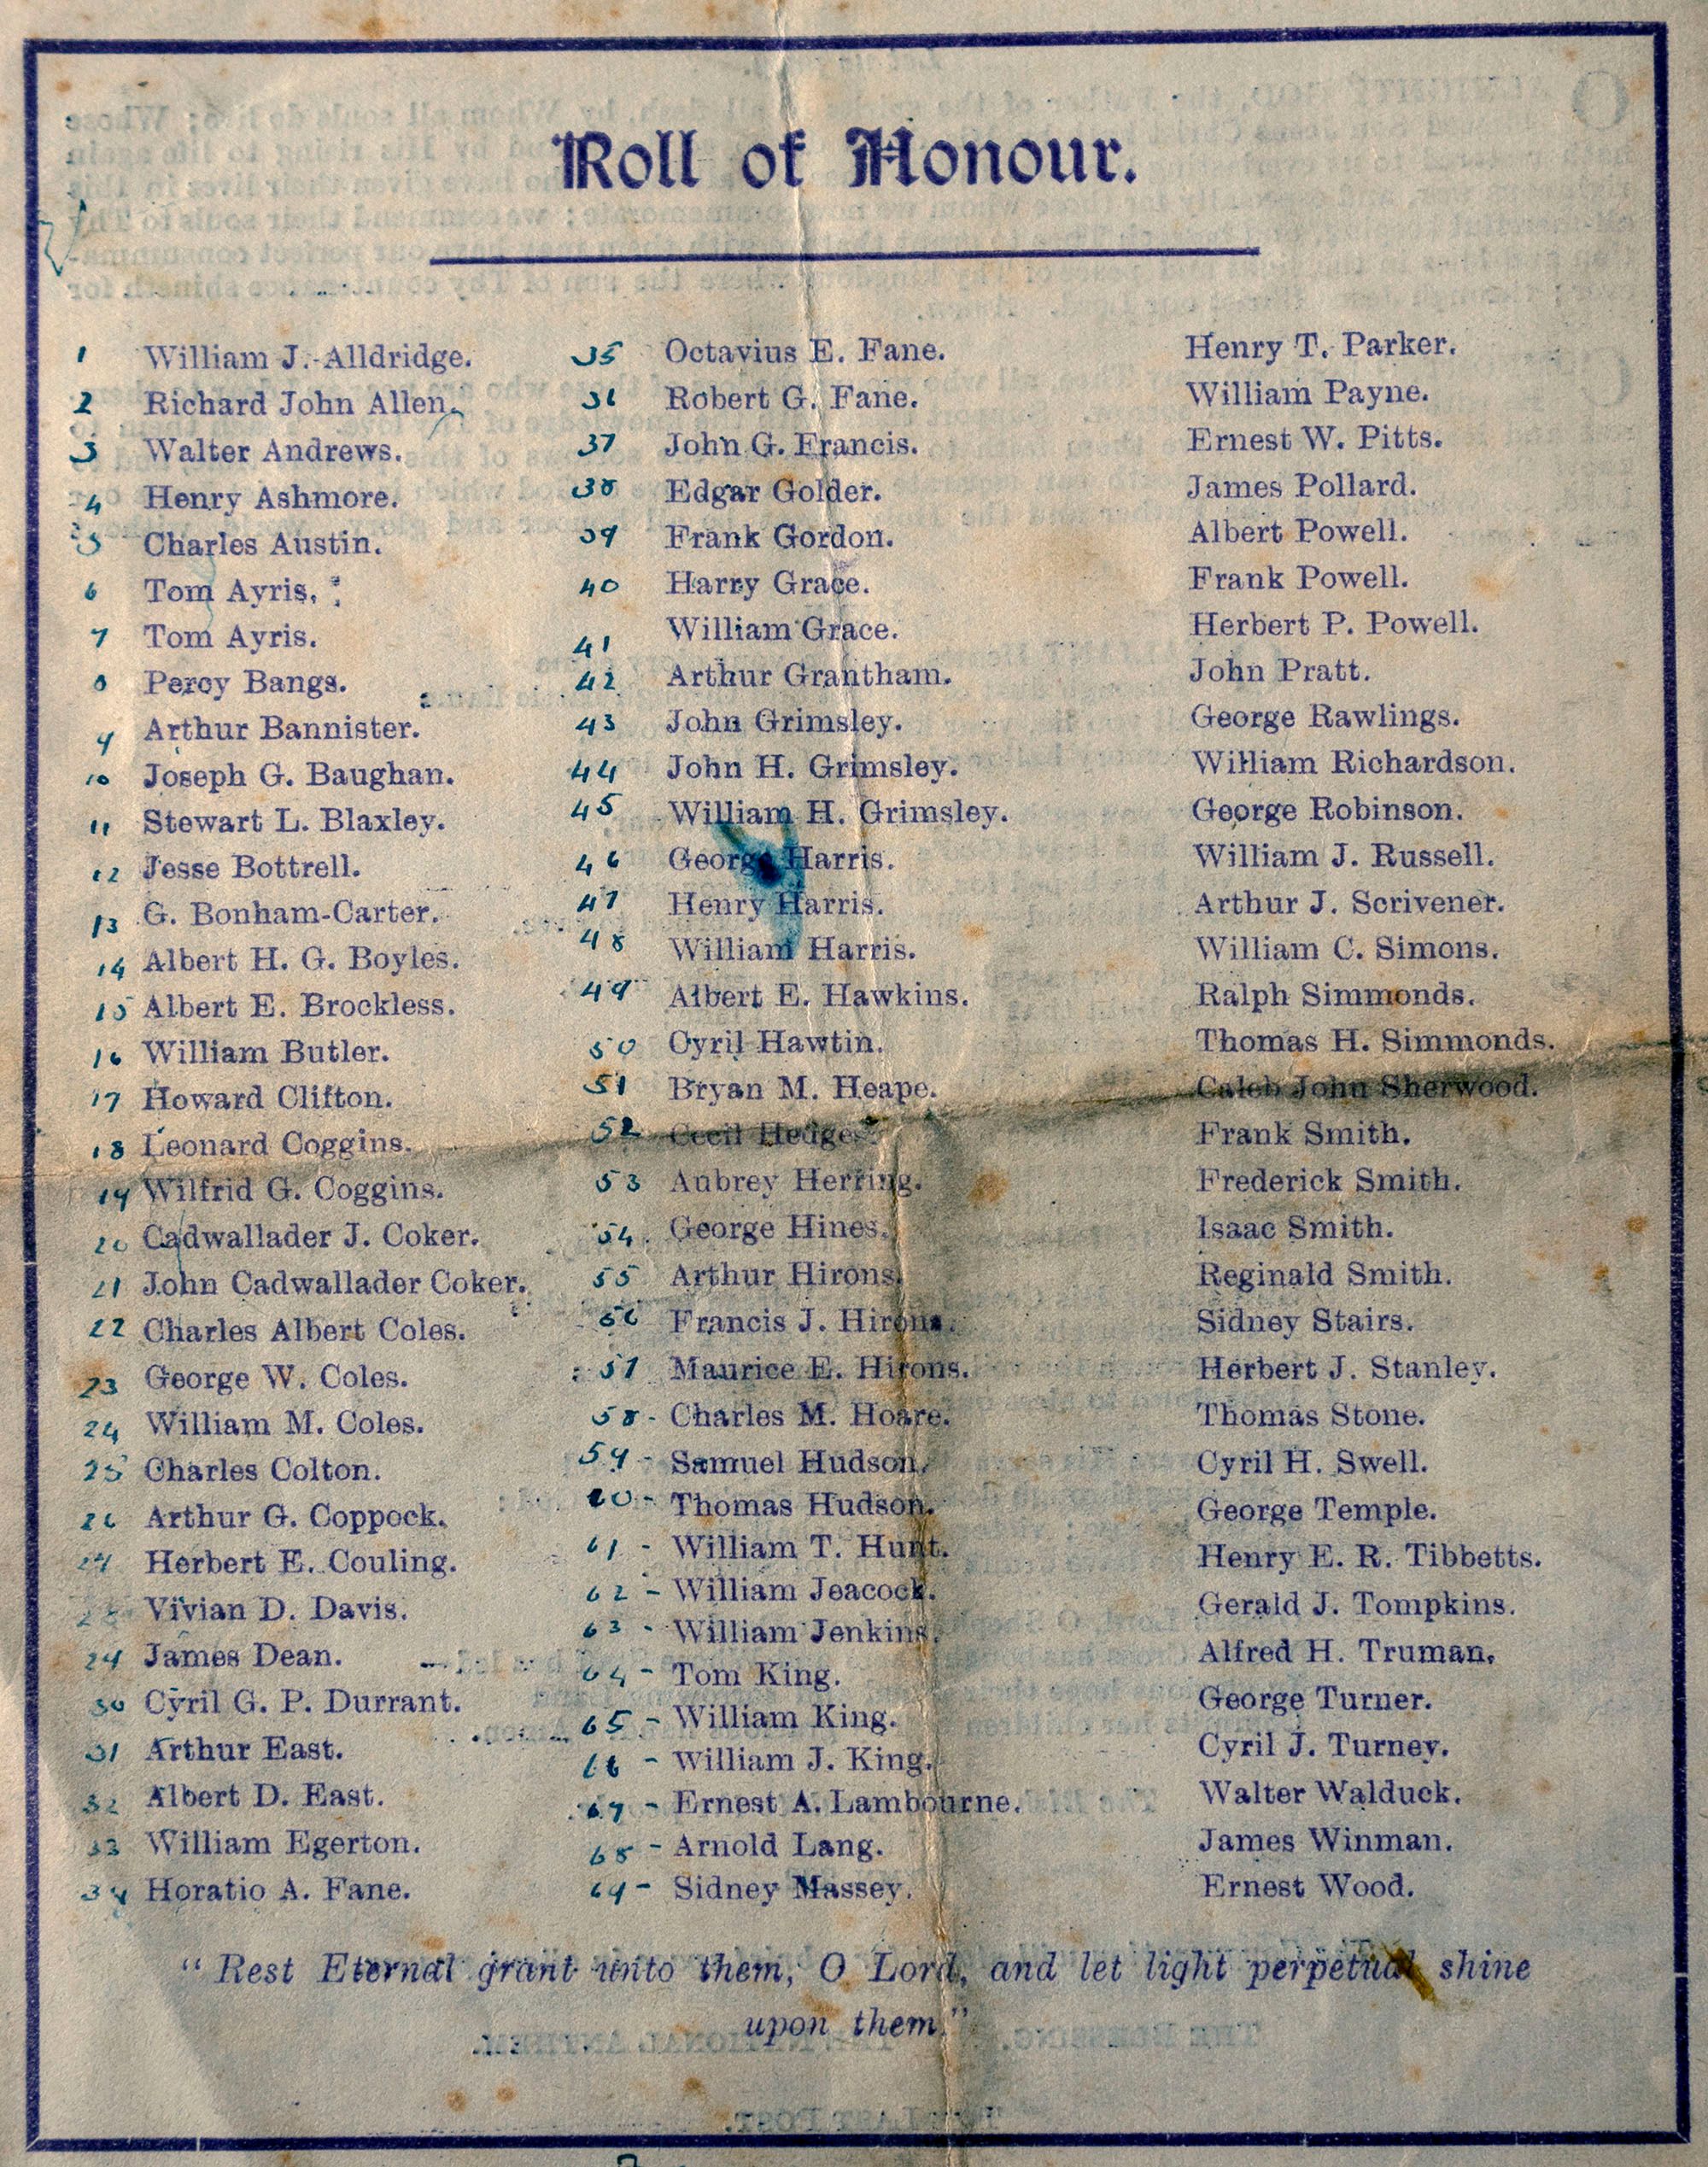 Roll of Honour.
1 William J. Alldridge.
2 Richard John Allen.
3 Walter Andrews.
4 Henry Ashmore.
5 Charles Austin.
6 Tom Ayris.
7 Tom Ayris.
8 Percy Bangs.
9 Arthur Bannister.
10 Joseph G. Baughan.
11 Stewart L. Blaxley.
12 Jesse Bottrell.
13 G. Bonham-Carter.
14 Albert H. G. Boyles.
15 Albert E. Brockless.
16 William Butler.
17 Howard Clifton.
18 Leonard Coggins.
19 Wilfrid G. Coggins.
20 Cadwallader J. Coker.
21 John Cadwallader Coker.
22 Charles Albert Coles.
23 George W. Coles.
24 William M. Coles.
25 Charles Colton.
26 Arthur G. Coppock.
27 Herbert E. Couling.
28 Vivian D. Davis.
29 James Dean.
30 Cyril G. P. Durrant.
31 Arthur East.
32 Albert D. East.
33 William Egerton.
34 Horatio A. Fane.
35 Octavius E. Fane.
36 Robert G. Fane.
37 John G. Francis.
38 Edgar Golder.
39 Frank Gordon.
40 Harry Grace.
41 William Grace.
42 Arthur Grantham.
43 John Grimsley.
44 John H. Grimsley.
45 William H. Grimsley.
46 George Harris.
47 Henry Harris.
48 William Harris.
49 Albert E. Hawkins.
50 Cyril Hawtin.
51 Bryan M. Heape.
52 Cecil Hedges.
53 Aubrey Herring.
54 George Hines.
55 Arthur Hirons.
56 Francis J. Hirons.
57 Maurice E. Hirons.
58 - Charles M. Hoare.
59 - Samuel Hudson.
60 - Thomas Hudson.
61 - William T. Hunt.
62 - William Jeacock.
63 - William Jenkins.
64 - Tom King.
65 - William King.
66 - William J. King.
67 - Ernest A. Lambourne.
68 - Arnold Lang.
69 - Sidney Massey.
Henry T. Parker.
William Payne.
Ernest W. Pitts.
James Pollard.
Albert Powell.
Frank Powell.
Herbert P. Powell.
John Pratt.
George Rawlings.
William Richardson.
George Robinson.
William J. Russell.
Arthur J. Scrivener.
William C. Simons.
Ralph Simmonds.
Thomas H. Simmonds.
Caleb John Sherwood.
Frank Smith.
Frederick Smith.
Isaac Smith.
Reginald Smith.
Sidney Stairs.
Herbert J. Stanley.
Thomas Stone.
Cyril H. Swell.
George Temple.
Henry E. R. Tibbetts.
Gerald J. Tompkins.
Alfred H. Truman.
George Turner.
Cyril J. Turney.
Walter Walduck.
James Winman.
Ernest Wood.
"Rest Eternal grant unto them, O Lord, and let light perpetual shine
upon them."